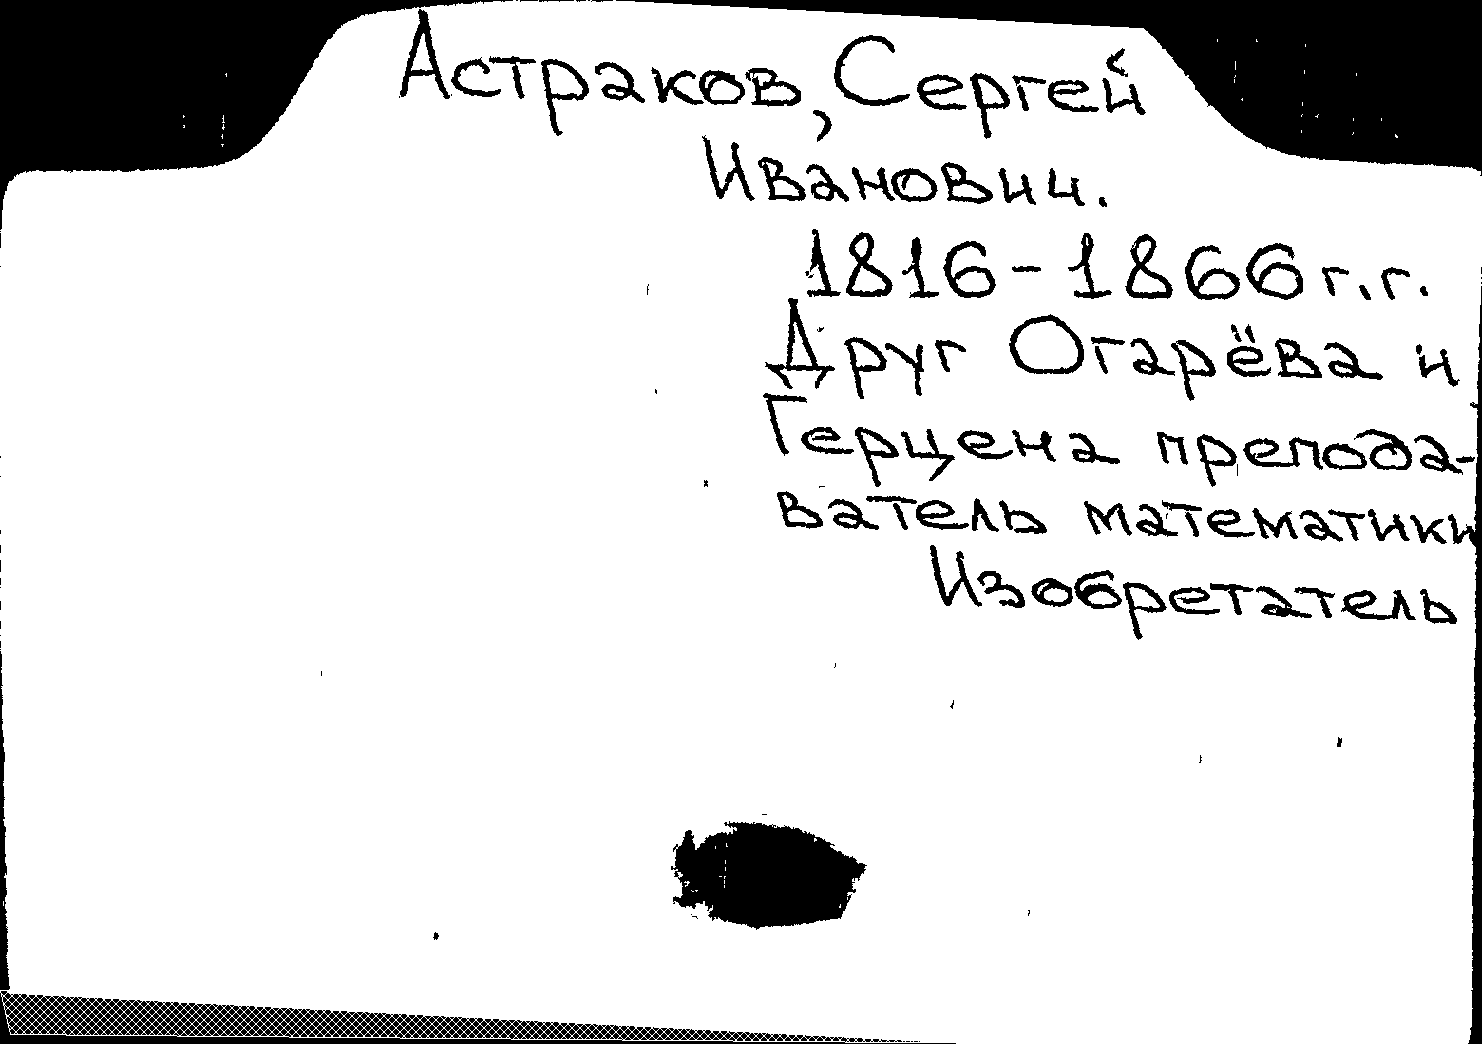 Астраков, Сергей
Иванович.
1816-1866 г.г.
Друг Огарёва и
Герцена препода-
ватель математики
Изобретатель